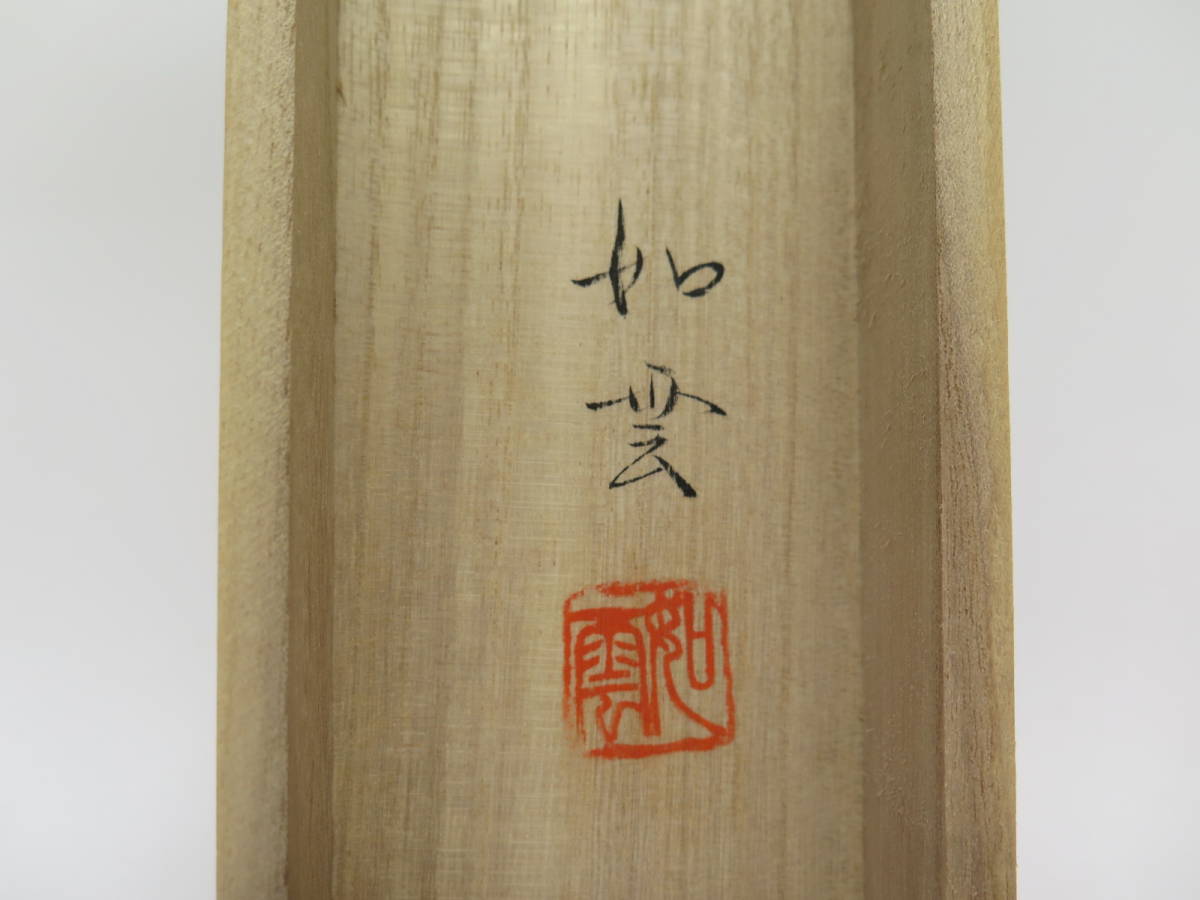 如雲
如雲